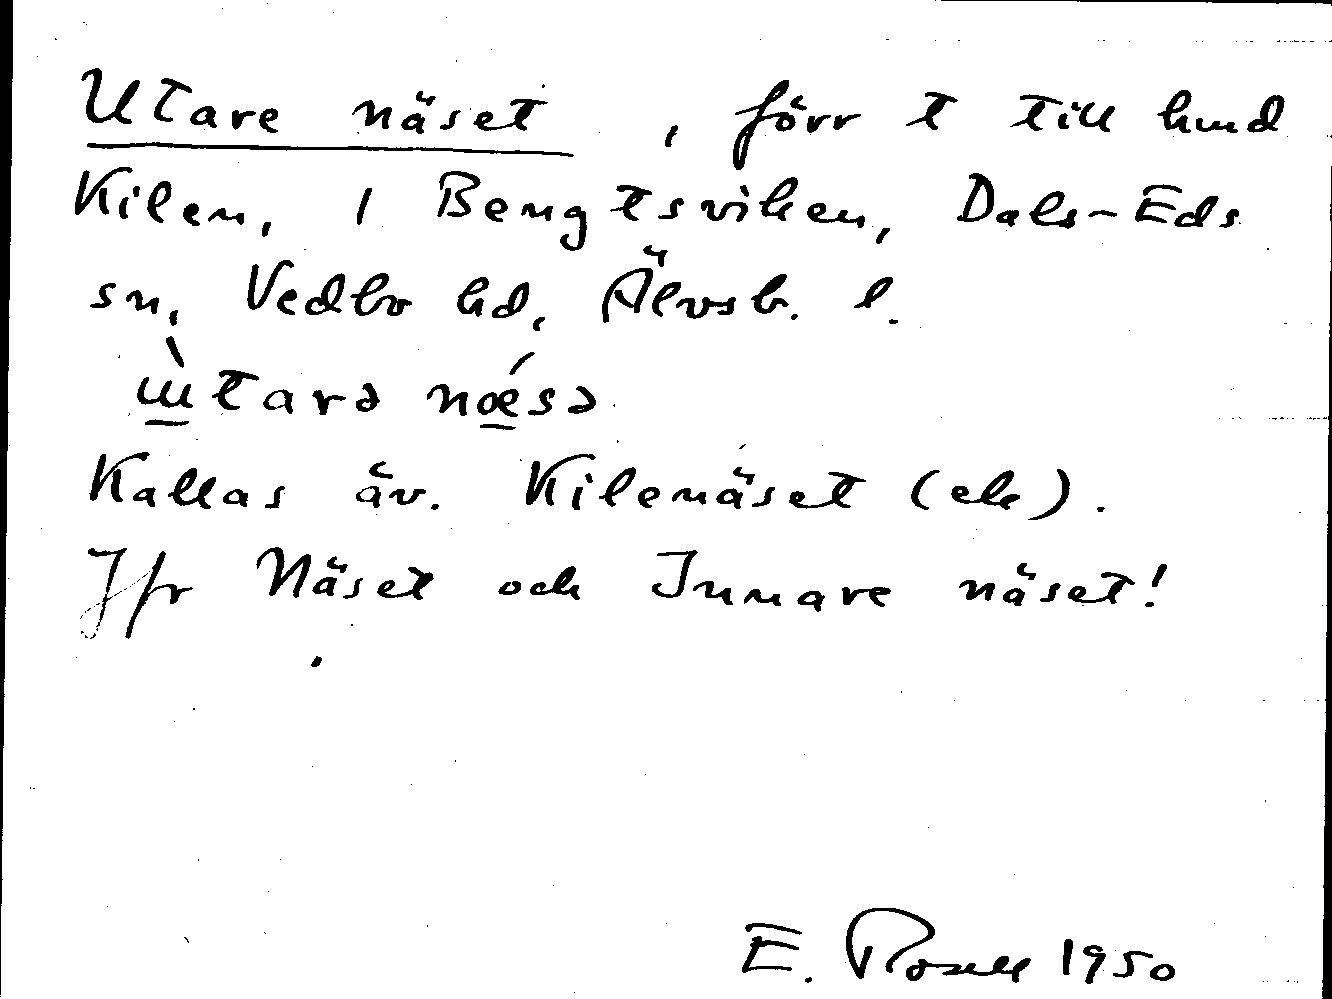 Utare näset, förr t till hmd
Kilen, 1 Bengtsviken, Dals-Eds
sn, Vedbo hd, Älvsb. l.
ɯ̀tarə nœ́sə
Kallas äv. Kilenäset (ek).
Jfr Näset och Innare näset!
E. Rosell 1950